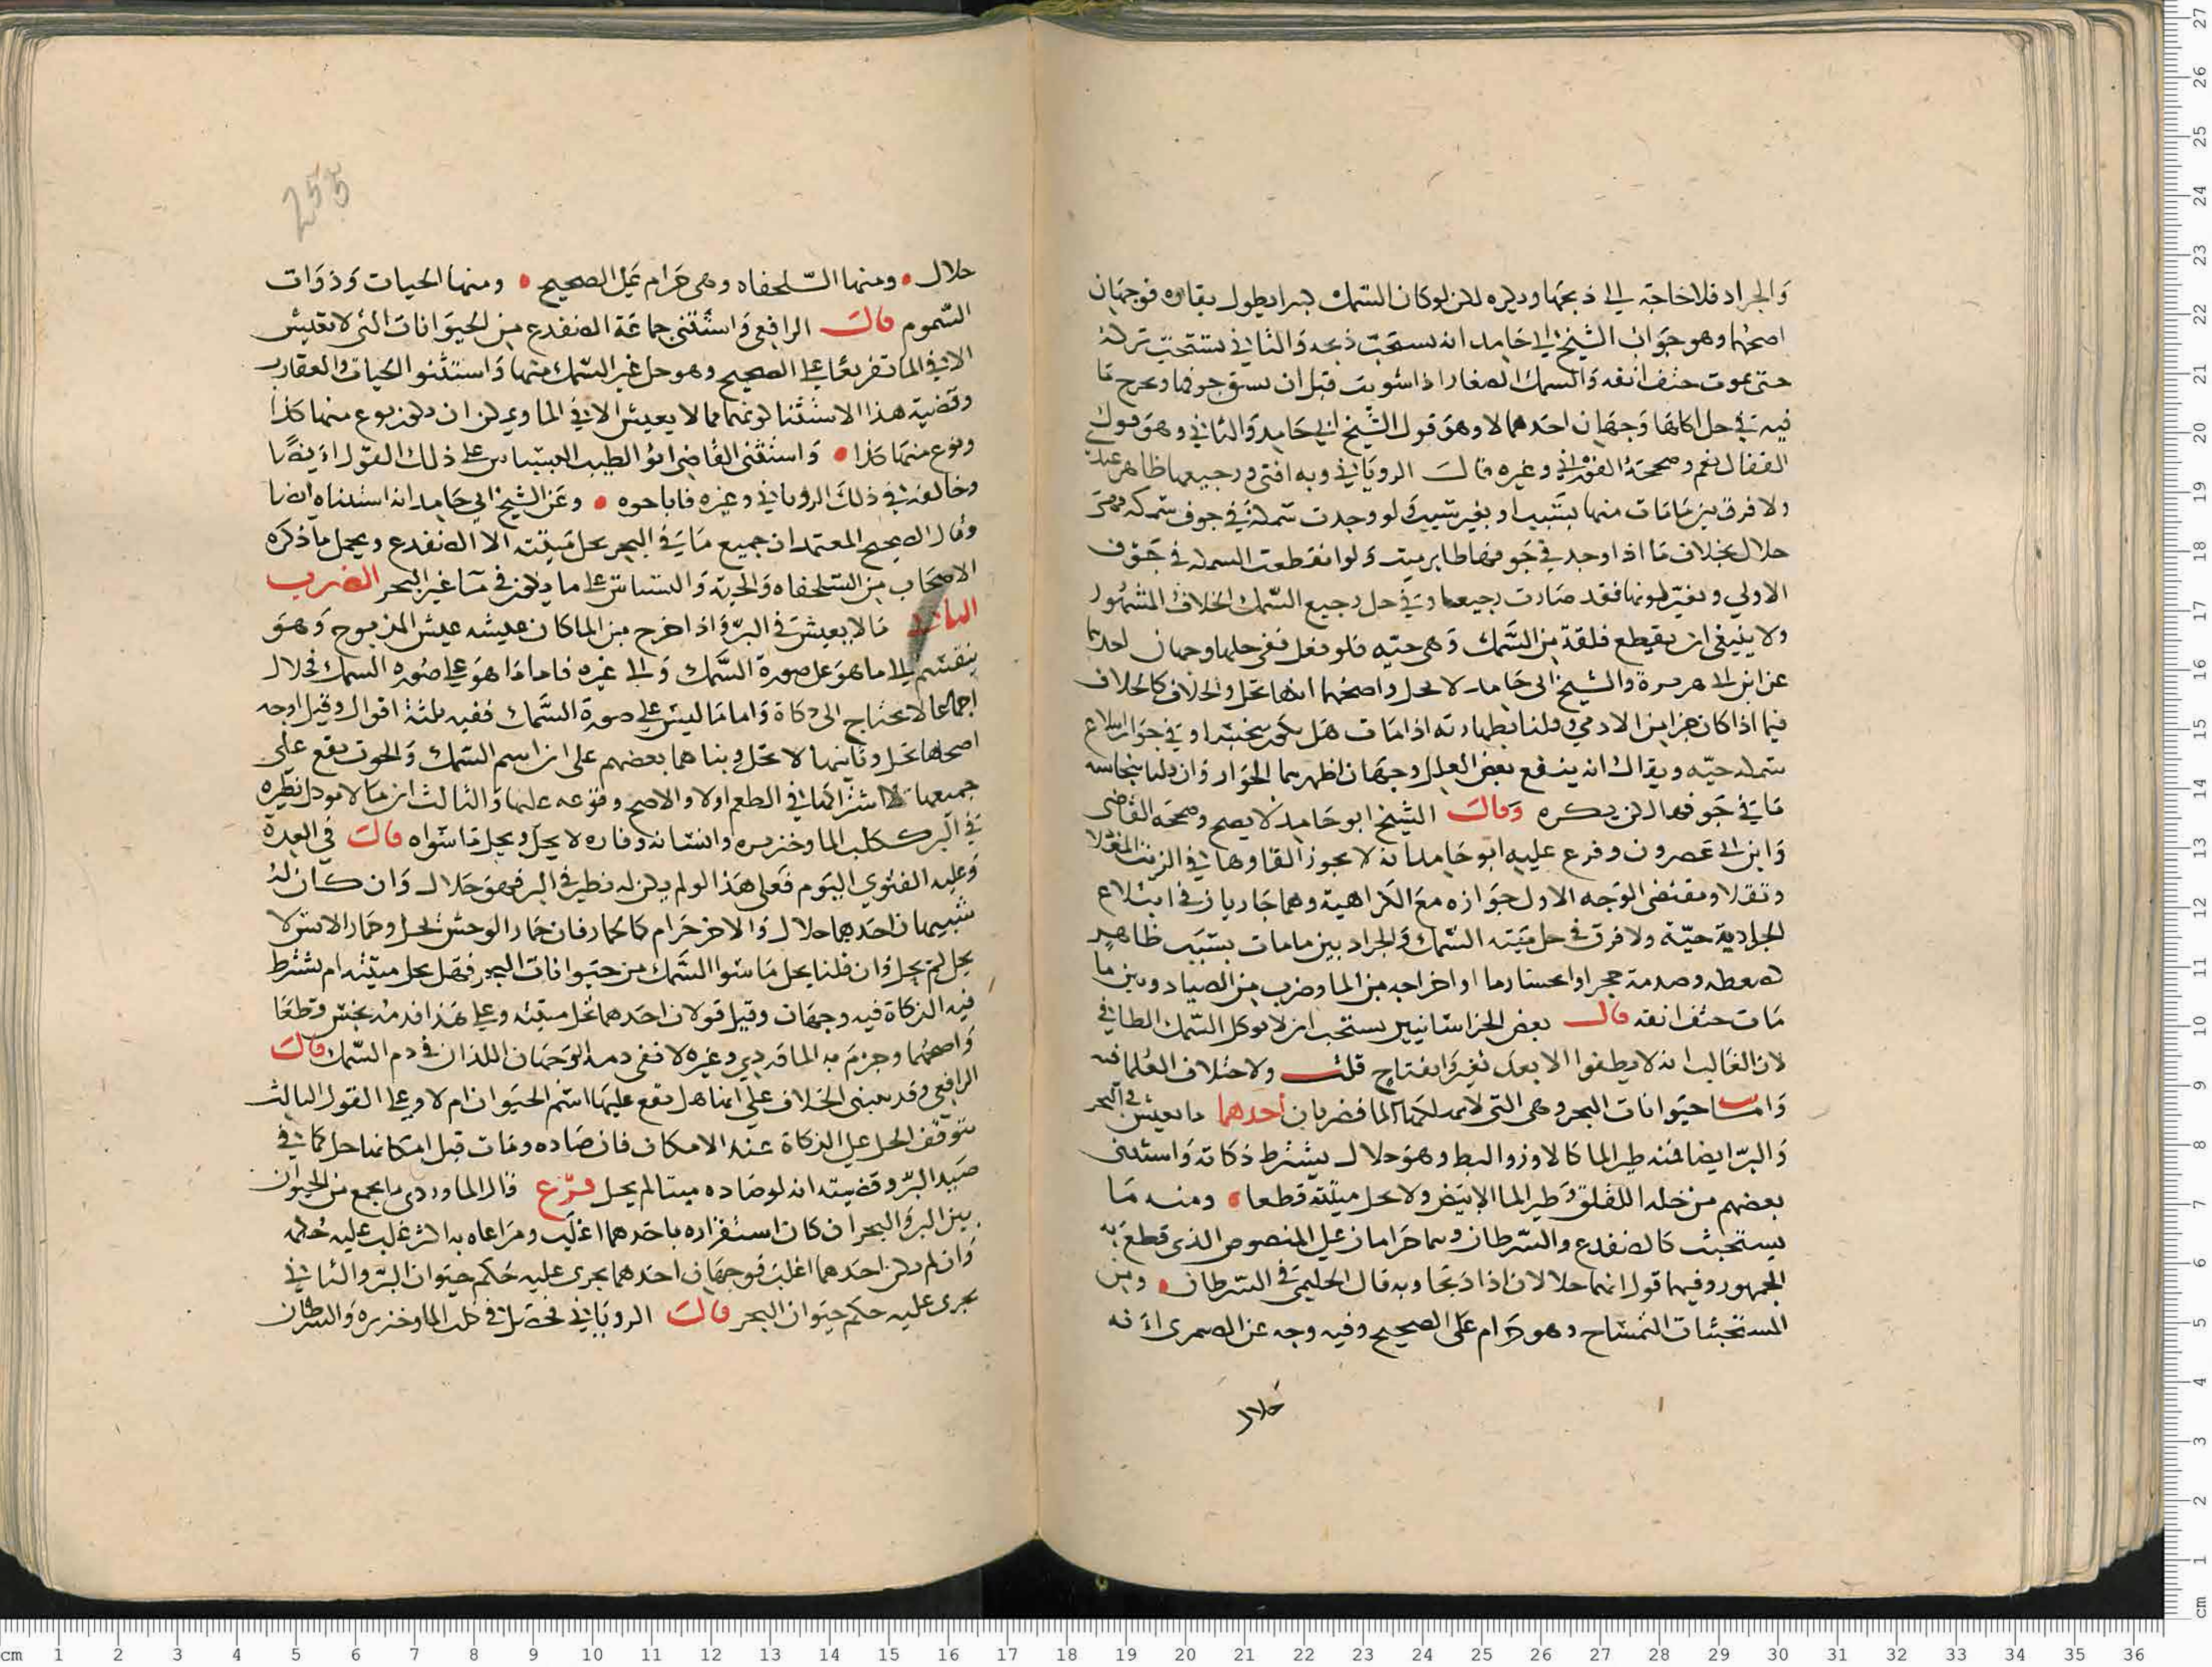 والجراد فلا حاجة الى ذبحها ويكره لكن لو كان السمك كبيرا يطول بقاوه فوجهان
اصحهما وهو جواب الشيخ ابي حامد انه يستحب ذبحه والثاني يستحب تركه
حتى يموت حتف انفه والسمك الصغار اذا شويت قبل ان يشق جوفها ويخرج ما
فيه في حل اكلها وجهان احدهما لا وهو قول الشيخ ابي حامد والثاني وهو قول
القفال نعم وصححه الفوراني وغيره قال الروياني وبه افتى ورجيعها ظاهر عندي
ولا فرق بين ما مات منها بسبب او بغير سبب ولو وجدت سمكة في جوف سمكة فهي
حلال بخلاف ما اذا وجد في جوفها طاير ميت ولو انقطعت السمكة في جوف
الاولى وتغير لونها فقد صارت رجيعا وفي حل رجيع السمك الخلاف المشهور
ولا ينبغي ان يقطع فلقة من السمك وهي حيه فلو فعل ففي حلها وجهان احدهما
عن ابن ابي هريرة والشيخ ابي حامد لا يحل واصحهما انها تحل والخلاف كالخلاف
فيما اذا كان جزا من الادمي وقلنا بطهارته اذا مات هل يكون نجسا وفي جواز ابتلاع
سمكه حيه ويقال انه ينفع بعض العلل وجهان اظهرهما الجواز وان قلنا بنجاسه
ما في جوفها لكن يكره وقال الشيخ ابو حامد لا يصح وصححه القاضي
وابن ابي عصرون وفرع عليه ابو حامد انه لا يجوز القاوها في الزيت المغلا
وتقلا ومقتضى الوجه الاول جوازه مع الكراهية وهما جاريان في ابتلاع
الجرادة حية ولا فرق في حل ميتة السمك والجراد بين ما مات بسبب ظاهر
كضغطه وصدمة حجر او انحسار ما او اخراجه من الما وضرب من الصياد وبين ما
مات حتف انفه قال بعض الخراسانيين يستحب ان لا يوكل السمك الطافي
لان الغالب انه لا يطفوا الا بعد تغير وانفتاح قلت ولاختلاف العلما فيه
واما حيوانات البحر وهي التي لا يهلكها الما فضربان احدهما ما يعيش في البحر
والبر ايضا فمنه طير الما كالاوز والبط وهو حلال بشرط ذكاته واستثنى
بعضهم من حله اللقلق وطير الما الابيض ولا تحل ميتته قطعا ومنه ما
يستخبث كالضفدع والسرطان وهما حرامان على المنصوص الذي قطع به
الجمهور وفيهما قول انهما حلالان اذا ذبحا وبه قال الحليمي في السرطان ومن
المستخبثات التمساح وهو حرام على الصحيح وفيه وجه عن الصيمري انه
حلال
255
حلال ومنها السلحفاه وهي حرام على الصحيح ومنها الحيات وذوات
السموم قال الرافعي واستثنى جماعة الضفدع من الحيوانات التي لا تعيش
الا في الما تفريعا على الصحيح وهو حل غير السمك منها واستثنوا الحيات والعقارب
وقضية هذا الاستثنا كونهما مما لا يعيش الا في الما ويمكن ان يكون نوع منها كذا
ونوع منها كذا واستثنى القاضي ابو الطيب النسناس على ذلك القول ايضا
وخالفه في ذلك الروياني وغيره فاباحوه وعن الشيخ ابي حامد انه استثناه ايضا
وقال الصحيح المعتمد ان جميع ما في البحر يحل ميتته الا الضفدع ويحمل ما ذكره
الاصحاب من السلحفاه والحية والنسناس على ما يكون في ما غير البحر الضرب
الثاني ما لا يعيش في البر واذا اخرج من الما كان عيشه عيش المذبوح وهو
ينقسم الى ما هو على صورة السمك والى غيره فاما ما هو على صوره السمك فحلال
اجماعا لا يحتاج الى ذكاة واما ما ليس على صورة السمك ففيه ثلثة اقوال وقيل اوجه
اصحها تحل وثانيها لا تحل وبناهما بعضهم على ان اسم السمك والحوت يقع على
جميعها لاشتراكها في الطعم اولا والاصح وقوعه عليها والثالث ان ما لا يوكل نظيره
في البر ككلب الما وخنزيره وانسانه وفاره لا يحل ويحل ما سواه قال في العدة
وعليه الفتوي اليوم فعلى هذا لو لم يكن له نظير في البر فهو حلال وان كان له
شبيهان احدهما حلال والاخر حرام كالحمار فان حمار الوحش يحل وحمار الانس لا
يحل لم يحل وان قلنا يحل ما سوا السمك من حيوانات البحر فهل يحل ميتته ام يشترط
فيه الذكاة فيه وجهان وقيل قولان احدهما تحل ميتته وعلى هذا فدمه نجس قطعا
واصحهما وجزم به الماوردي وغيره لا ففي دمه الوجهان اللذان في دم السمك قال
الرافعي وقد يبنى الخلاف على انها هل يقع عليها اسم الحيوان ام لا وعلى القول الثالث
يتوقف الحل على الذكاة عند الامكان فان صاده ومات قبل امكانها حل كما في
صيد البر وقضيته انه لو صاده ميتا لم يحل فرع قال الماوردي ما يجمع من الحيوان
بين البر والبحر ان كان استقراره باحدهما اغلب ومراعاه به اكثر غلب عليه حكمه
وان لم يكن احدهما اغلب فوجهان احدهما يجري عليه حكم حيوان البر والثاني
يجرى عليه حكم حيوان البحر قال الروياني فحصل في كلب الما وخنزيره والسرطان